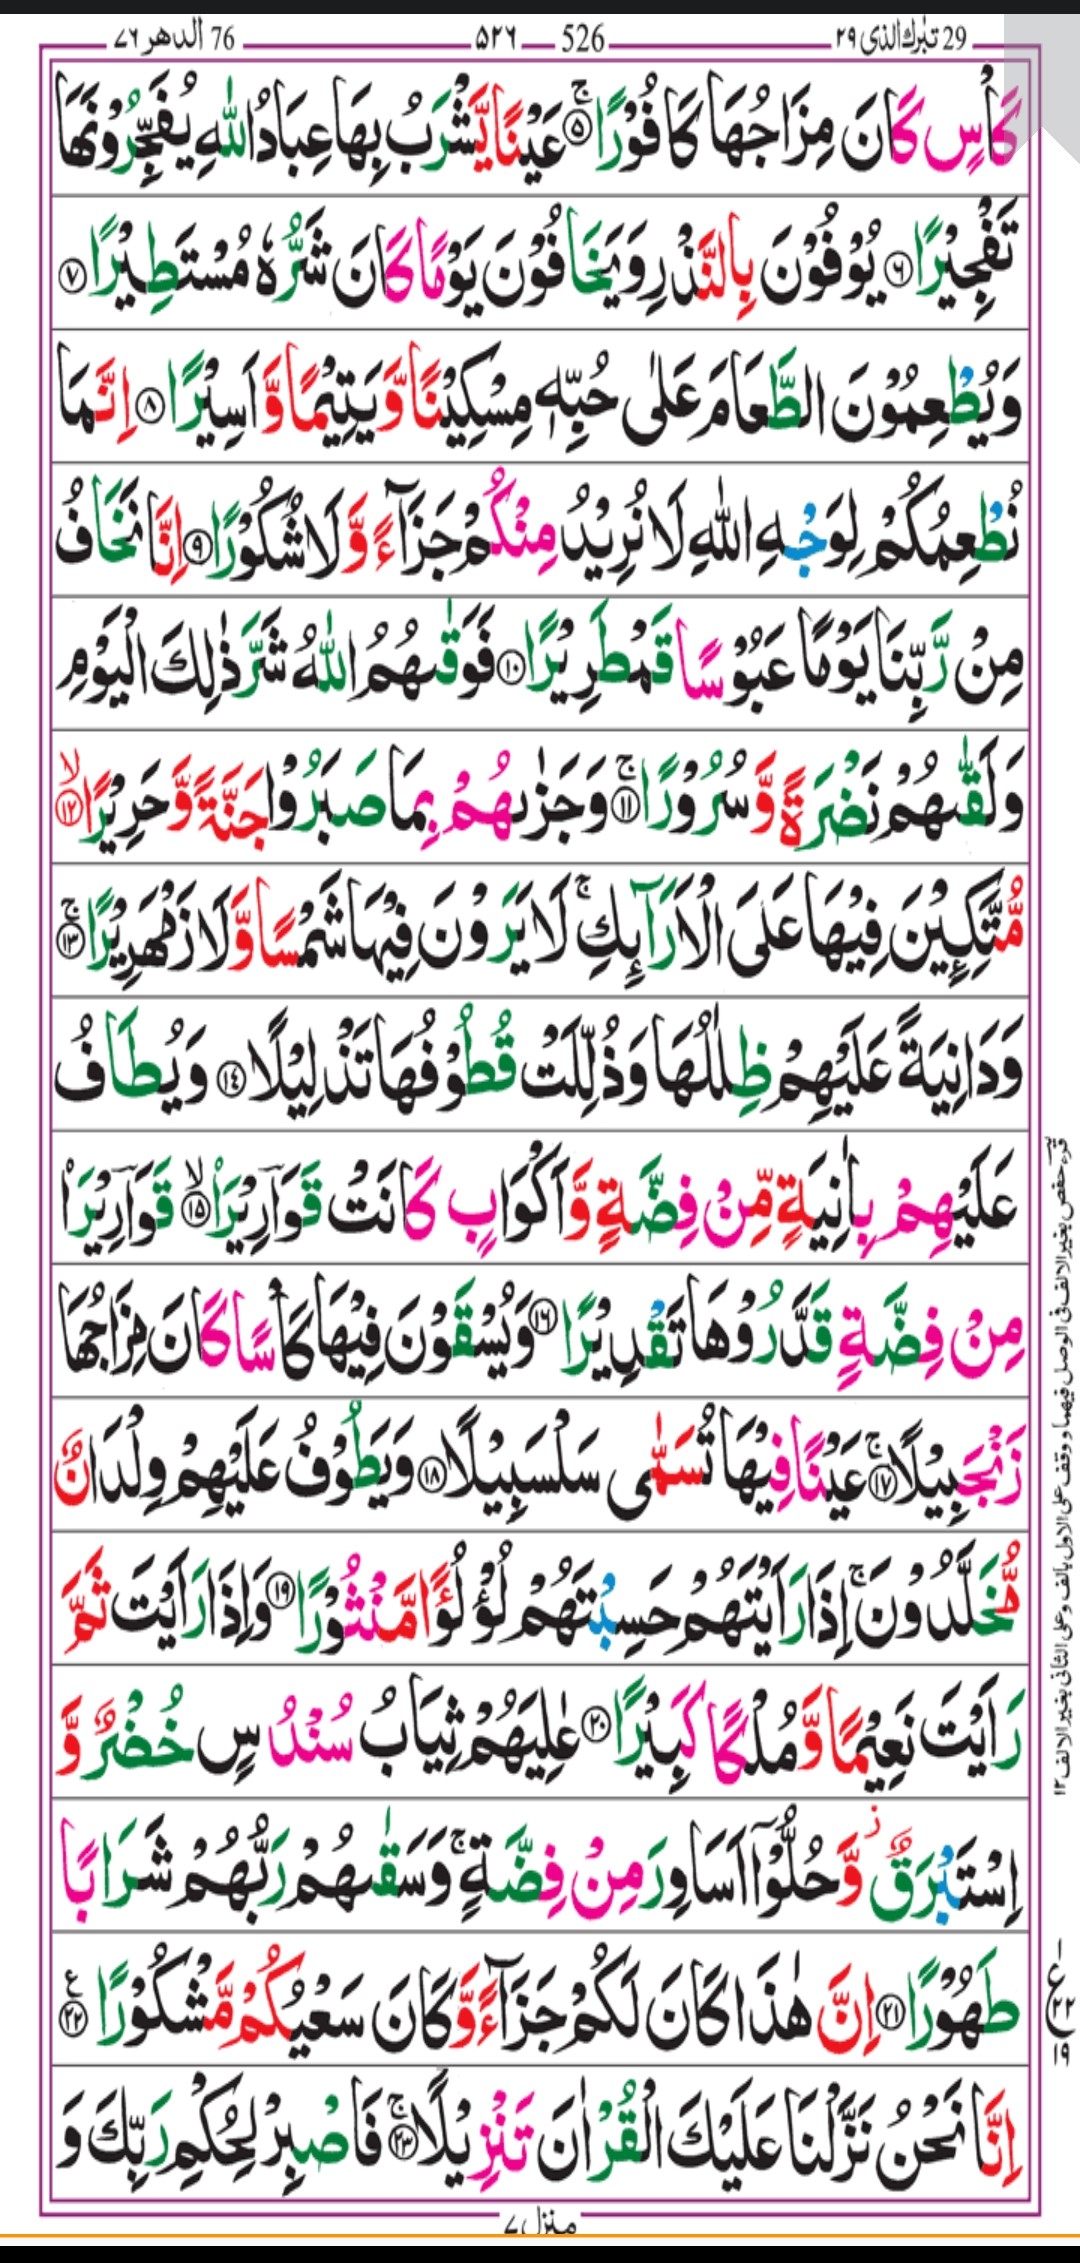 29 تبٰرك الذى ٢٩ 526 ٥٢٦ 76 الدهر ٧٦
كَاْسٍ كَانَ مِزَاجُهَا كَافُوْرًا ۚ ‏﴿۵﴾‏ عَيْنًا يَّشْرَبُ بِهَا عِبَادُ اللّٰهِ يُفَجِّرُوْنَهَا
تَفْجِيْرًا ‏﴿۶﴾‏ يُوْفُوْنَ بِالنَّذْرِ وَيَخَافُوْنَ يَوْمًا كَانَ شَرُّهٗ مُسْتَطِيْرًا ‏﴿۷﴾‏
وَيُطْعِمُوْنَ الطَّعَامَ عَلٰى حُبِّهٖ مِسْكِيْنًا وَّيَتِيْمًا وَّاَسِيْرًا ‏﴿۸﴾‏ اِنَّمَا
نُطْعِمُكُمْ لِوَجْهِ اللّٰهِ لَا نُرِيْدُ مِنْكُمْ جَزَآءً وَّلَا شُكُوْرًا ‏﴿۹﴾‏ اِنَّا نَخَافُ
مِنْ رَّبِّنَا يَوْمًا عَبُوْسًا قَمْطَرِيْرًا ‏﴿۱۰﴾‏ فَوَقٰىهُمُ اللّٰهُ شَرَّ ذٰلِكَ الْيَوْمِ
وَلَقّٰىهُمْ نَضْرَةً وَّسُرُوْرًا ۚ ‏﴿۱۱﴾‏ وَجَزٰىهُمْ بِمَا صَبَرُوْا جَنَّةً وَّحَرِيْرًا ۙ ‏﴿۱۲﴾‏
مُّتَّكِـِٕيْنَ فِيْهَا عَلَى الْاَرَآىِٕكِ ۚ لَا يَرَوْنَ فِيْهَا شَمْسًا وَّلَا زَمْهَرِيْرًا ۚ ‏﴿۱۳﴾‏
وَدَانِيَةً عَلَيْهِمْ ظِلٰلُهَا وَذُلِّلَتْ قُطُوْفُهَا تَذْلِيْلًا ‏﴿۱۴﴾‏ وَيُطَافُ
عَلَيْهِمْ بِاٰنِيَةٍ مِّنْ فِضَّةٍ وَّاَكْوَابٍ كَانَتْ قَوَآرِيْرَا۟ ۙ ‏﴿۱۵﴾‏ قَوَآرِيْرَا۟
مِنْ فِضَّةٍ قَدَّرُوْهَا تَقْدِيْرًا ‏﴿۱۶﴾‏ وَيُسْقَوْنَ فِيْهَا كَاْسًا كَانَ مِزَاجُهَا
زَنْجَبِيْلًا ۚ ‏﴿۱۷﴾‏ عَيْنًا فِيْهَا تُسَمّٰى سَلْسَبِيْلًا ‏﴿۱۸﴾‏ وَيَطُوْفُ عَلَيْهِمْ وِلْدَانٌ
مُّخَلَّدُوْنَ ۚ اِذَا رَاَيْتَهُمْ حَسِبْتَهُمْ لُؤْلُؤًا مَّنْثُوْرًا ‏﴿۱۹﴾‏ وَاِذَا رَاَيْتَ ثَمَّ
رَاَيْتَ نَعِيْمًا وَّمُلْكًا كَبِيْرًا ‏﴿۲۰﴾‏ عٰلِيَهُمْ ثِيَابُ سُنْدُسٍ خُضْرٌ وَّ
اِسْتَبْرَقٌ ۡ وَّحُلُّوْۤا اَسَاوِرَ مِنْ فِضَّةٍ ۚ وَسَقٰىهُمْ رَبُّهُمْ شَرَابًا
طَهُوْرًا ‏﴿۲۱﴾‏ اِنَّ هٰذَا كَانَ لَكُمْ جَزَآءً وَّكَانَ سَعْيُكُمْ مَّشْكُوْرًا ‏﴿۲۲﴾‏ ع
اِنَّا نَحْنُ نَزَّلْنَا عَلَيْكَ الْقُرْاٰنَ تَنْزِيْلًا ۚ ‏﴿۲۳﴾‏ فَاصْبِرْ لِحُكْمِ رَبِّكَ وَ
منزل ٧
قرء حفص بغير الالف فى الوصل فيهما ووقف على الاول بالف وعلى الثانى بغير الالف ١٢
ع ٢٢